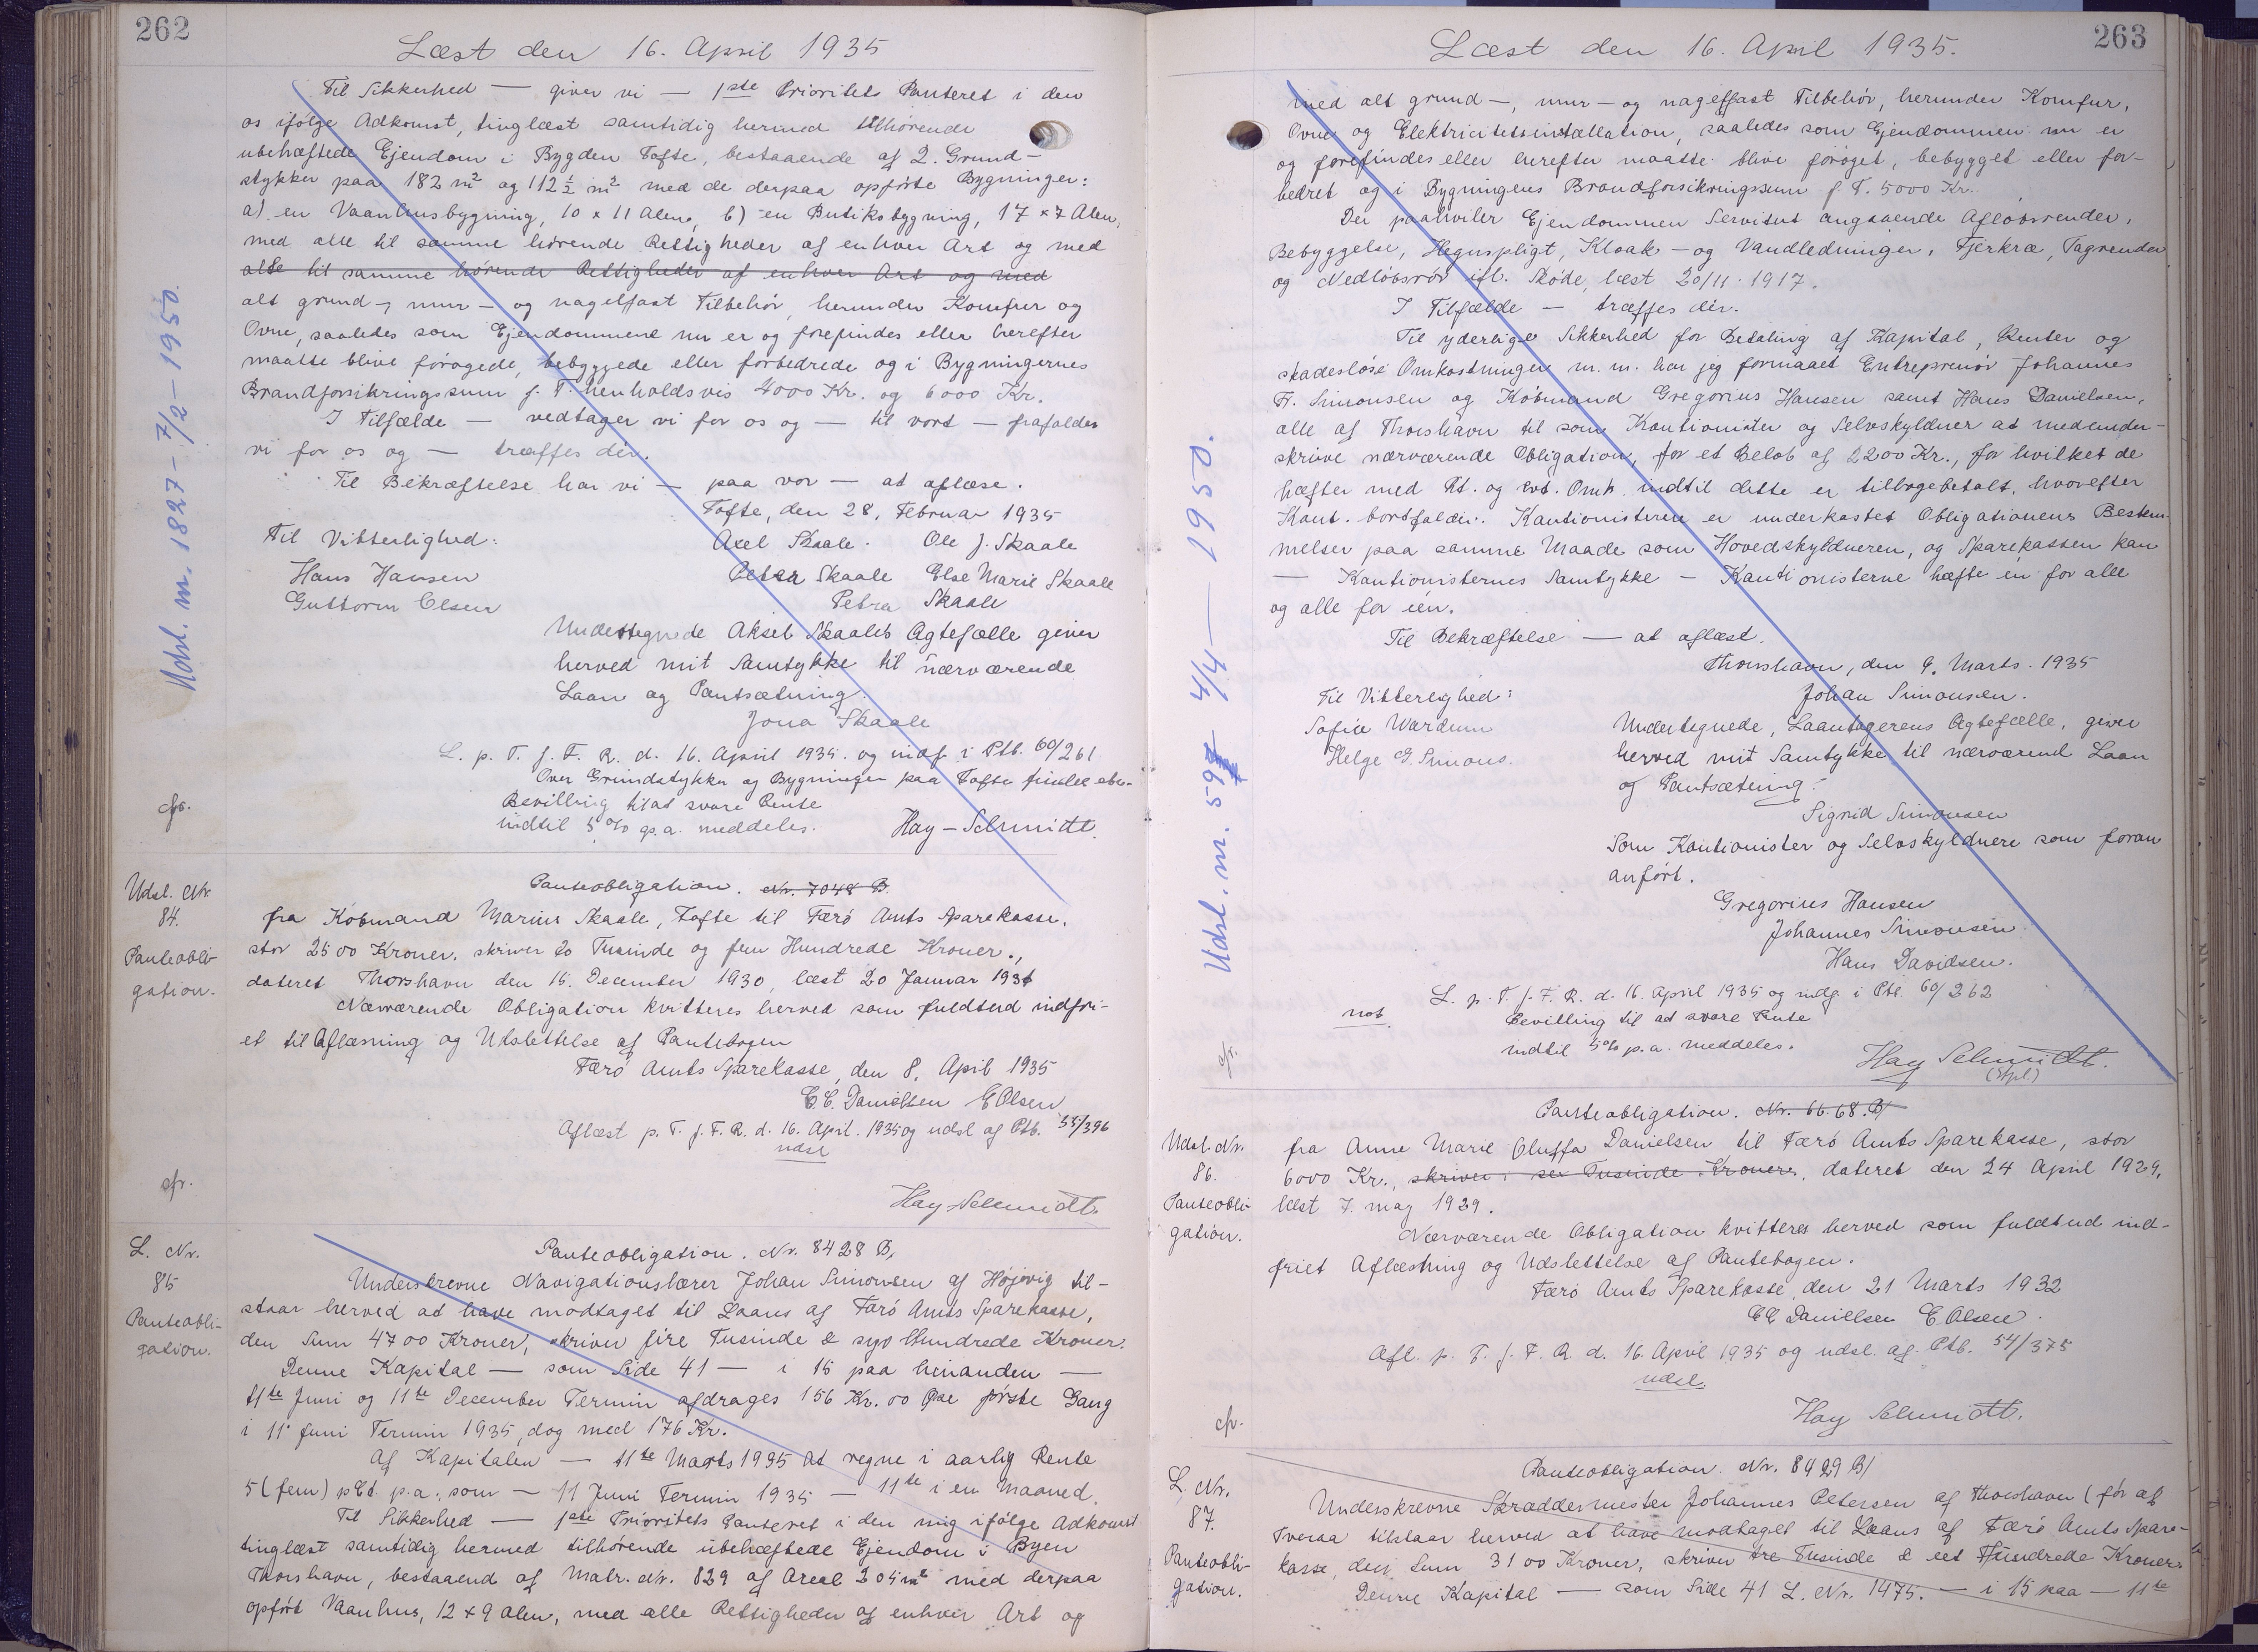 262
Læst den 16. April 1935
Til Sikkerhed — giver vi — 1ste Prioritets Panteret i den
os ifølge Adkomst, tinglæst samtidig hermed tilhørende
ubehæftede Ejendom i Bygden Tofte, bestaaende af 2. Grund-
stykker paa 182 m² og 112½ m² med de derpaa opførte Bygninger:
a) en Vaanhusbygning, 10 x 11 Alen, b) en Butiksbygning, 17 x 7 Alen,
med alle til samme hørende Rettigheder af enhver Art og med
alle til samme hørende Rettigheder af enhver Art og med
alt grund-, mur- og nagelfast Tilbehör, herunder Komfur og
Ovne, saaledes som Ejendommene nu er og forefindes eller herefter
maatte blive forøgede, bebyggede eller forbedrede og i Bygningernes
Brandforsikringssum f. T. henholdsvis 4000 Kr. og 6000 Kr.
I Tilfælde — vedtager vi for os og — til vort — frafalder
vi for os og — træffes dér.
Til Bekræftelse har vi — paa vor — at aflæse.
Tofte, den 28. Februar 1935
Til Vitterlighed: Axel Skaale. Ole J. Skaale
Hans Hansen Petra Skaale Else Marie Skaale
Guttorm Olsen Petra Skaale
Undertegnede Aksel Skaales Ægtefælle giver
herved mit Samtykke til nærværende
Laan og Pantsætning.
Jona Skaale
L. p. T. f. F. R. d. 16. April 1935. og indf. i Ptb. 60/261
Over Grundstykker og Bygninger paa Tofte findes
Bevilling til at svare Rente
indtil 5% p.a. meddeles. Hay-Schmidt.
cfr.
Udsl. nr. 1827 - 7/2 - 1950.
Udsl. Nr.
84.
Panteobli-
gation.
Panteobligation. Nr. 7048 B.
fra Købmand Marius Skaale, Tofte til Færö Amts Sparekasse,
stor 2500 Kroner, skriver to Tusinde og fem Hundrede Kroner.,
dateret Thorshavn den 15. December 1930, læst 20 Januar 1931
Nærværende Obligation kvitteres herved som fuldtud indfri-
et til Aflæsning og Udslettelse af Pantebogen
Færö Amts Sparekasse, den 8. April 1935
C.C. Danielsen E Olsen
Aflæst p. T. f. F. R. d. 16. April. 1935 og udsl af Ptb. 55/396
udsl
cfr.
Hay-Schmidt.
L. Nr.
85
Panteobli-
gation.
Panteobligation. Nr. 8428 B,
Underskrevne Navigationslærer Johan Simonsen af Höjvig til-
staar herved at have modtaget til Laans af Færö Amts Sparekasse,
den Sum 4700 Kroner, skriver fire Tusinde & syv Hundrede Kroner.
Denne Kapital — som Side 41 — i 15 paa hinanden —
11te Juni og 11te December Termin afdrages 156 Kr. 00 Øre første Gang
i 11' Juni Termin 1935, dog med 176 Kr.
Af Kapitalen — 11te Marts 1935 at regne i aarlig Rente
5 (fem) pCt. p.a., som — 11 Juni Termin 1935 — 11te i en Maaned.
Til Sikkerhed — 1ste Prioritets Panteret i den mig ifølge Adkomst
tinglæst samtidig hermed tilhørende ubehæftede Ejendom i Byen
Thorshavn, bestaaend af Matr. Nr. 829 af Areal 204 m² med derpaa
opført Vaanhus, 12 x 9 Alen, med alle Rettigheder af enhver Art og
263
Læst den 16. April 1935.
med alt grund-, mur- og nagelfast Tilbehör, herunder Komfur,
Ovne og Elektricitetsinstallation, saaledes som Ejendommen nu er
og forefindes eller herefter maatte blive forøget, bebygget eller for-
bedret og i Bygningens Brandforsikringssum f. T. 5000 Kr.
Der paahviler Ejendommen Servitut angaaende Afløbsrender,
Bebyggelse, Hegnspligt, Kloak- og Vandledninger, Fjerkræ, Tagrender
og Nedløbsrör ifl. Skøde, læst 20/11. 1917.
I Tilfælde — træffes dér.
Til yderlige Sikkerhed for Betaling af Kapital, Renter og
skadesløse Omkostninger m. m. har jeg formaaet Entreprenör Johannes
Fr. Simonsen og Købmand Gregorius Hansen samt Hans Danielsen,
alle af Thorshavn til som Kautionister og Selvskyldner at medunder-
skrive nærværende Obligation, for et Beløb af 2200 Kr., for hvilket de
hæfter med Rt. og evt. Omk. indtil dette er tilbagebetalt, hvorefter
Kaut. bortfalder. Kautionisterne er underkastet Obligationens Bestem-
melser paa samme Maade som Hovedskyldneren, og Sparekassen kan
— Kautionisternes Samtykke — Kautionisterne hæfte én for alle
og alle for één.
Til Bekræftelse — at aflæst.
Thorshavn, den 9. Marts. 1935
Til Vitterlighed: Johan Simonsen.
Sofie Wardum
Helge G. Simons.
Undertegnede, Laantagerens Ægtefælle, giver
herved mit Samtykke til nærværend Laan
og Pantsætning.
Sigrid Simonsen
Som Kautionister og Selvskyldnere som foran
anført.
Gregorius Hansen
Johannes Simonsen
Hans Davidsen.
L. p. T. f. F. R. d. 16. April 1935 og indf. i Ptb. 60/262
not.
Bevilling til at svare Rente
indtil 5% p.a. meddeles.
cfr.
Hay Schmidt.
(Stpl.)
4/4 — 1950.
Udsl. Nr.
86.
Panteobli-
gation.
Panteobligation. Nr. 66.68. B/
fra Anne Marie Oluffa Danielsen til Færö Amts Sparekasse, stor
6000 Kr., skriver: sex Tusinde Kroner, dateret den 24 April 1929,
læst 7. may 1929.
Nærværende Obligation kvitteres herved som fuldtud ind-
friet Aflæsning og Udslettelse af Pantebogen.
Færö Amts Sparekasse, den 21 Marts 1932
CC Danielsen E. Olsen.
Afl. p. T. f. F. R. d. 16. April 1935 og udsl. af. Ptb. 54/375
udsl.
cfr.
Hay Schmidt.
L. Nr.
87.
Panteobli-
gation.
Panteobligation. Nr. 8429 B/
Underskrevne Skræddermester Johannes Petersen af Thorshavn (før af
Tveraa tilstaar herved at have modtaget til Laans af Færö Amts Spare-
kasse, den Sum 3100 Kroner, skriver tre Tusinde & eet Hundrede Kroner.
Denne Kapital — som Side 41 L. Nr. 1475. — i 15 paa — 11te